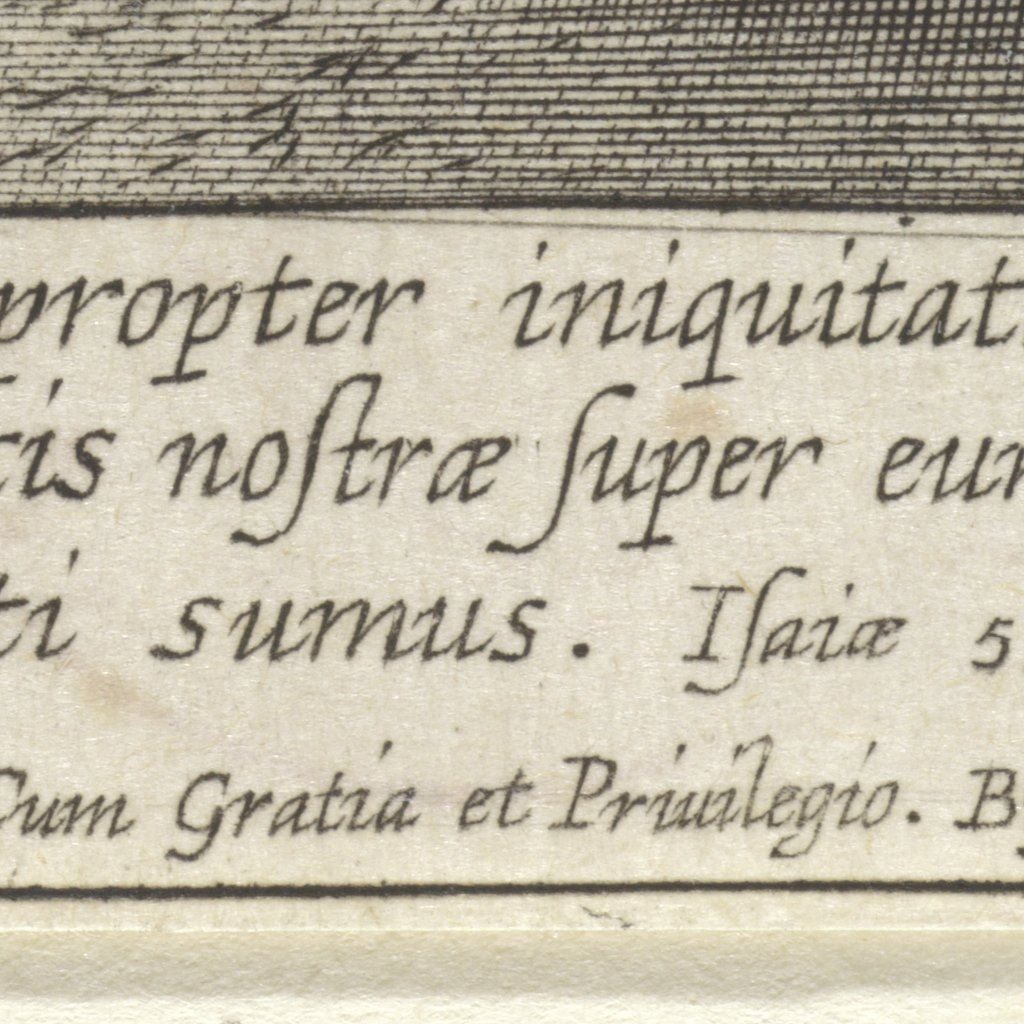 propter iniquitat
cis noſtræ ſuper eum
ti sumus. Iſaiæ 5
Cum Gratia et Priuilegio. B